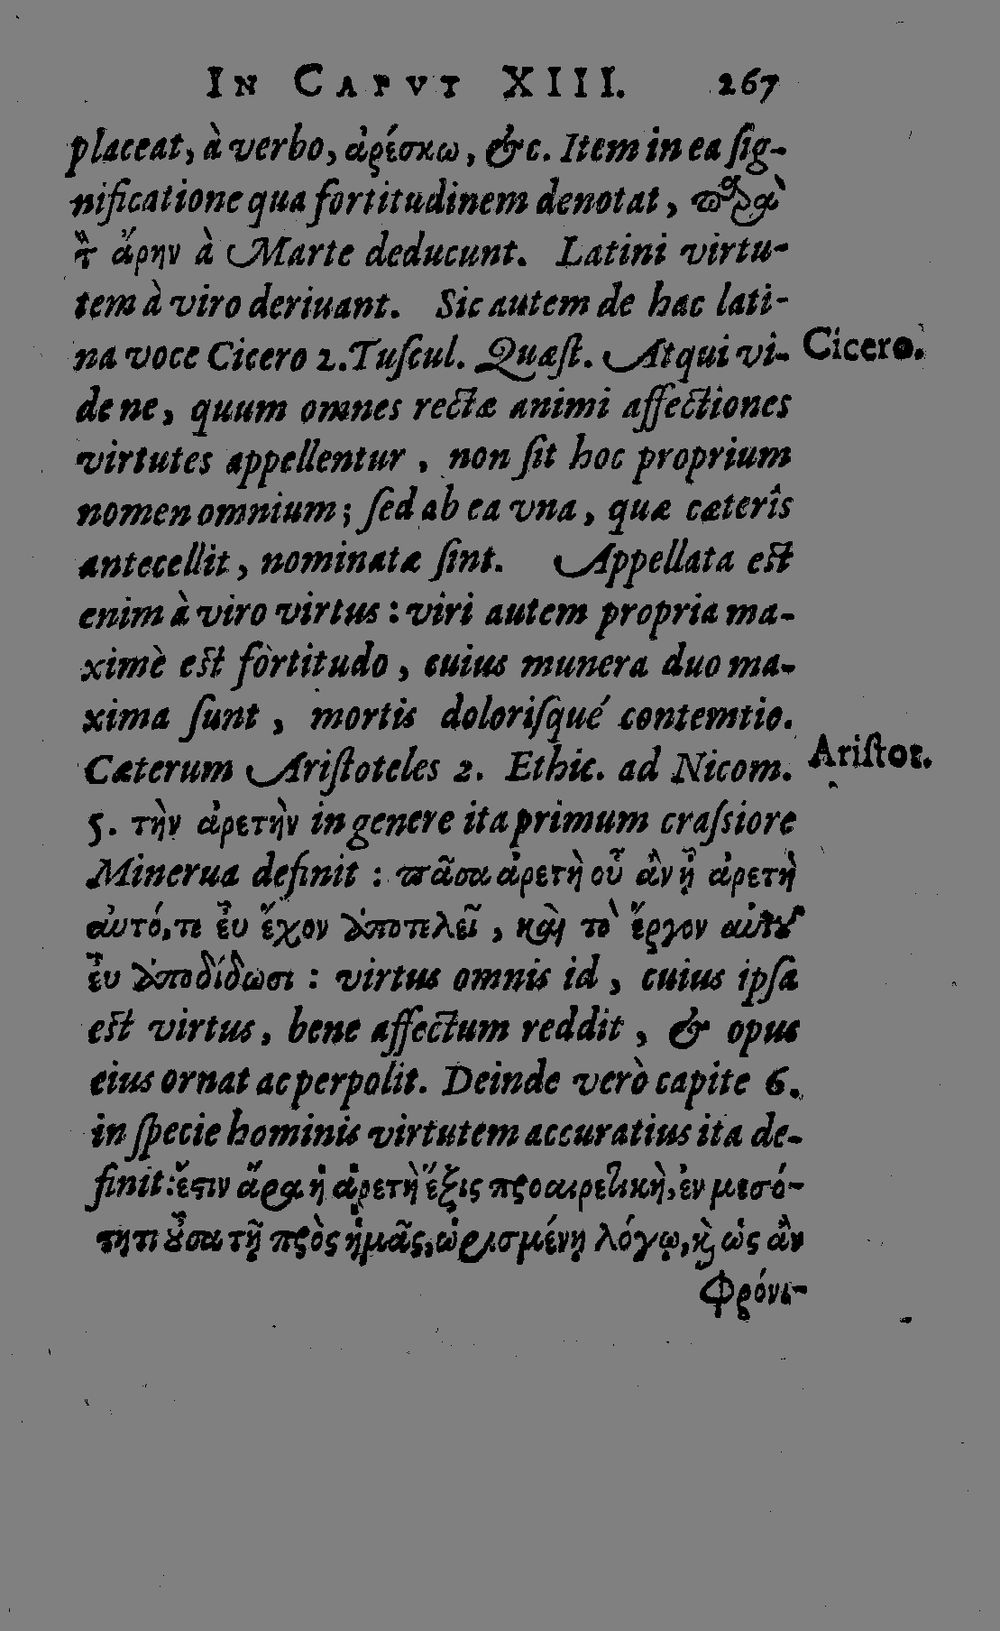 IN CAPVT XIII. 267
placeat, à verbo, ἀρέσκω, &c. Item in ea ſig-
nificatione qua fortitudinem denotat, παρὰ
τ̀ ἄρην à Marte deducunt. Latini virtu-
tem à viro deriuant. Sic autem de hac lati-
na voce Cicero 2. Tuſcul. Quæſt. Atqui vi-
Cicero.
de ne, quum omnes rectæ animi affectiones
virtutes appellentur, non ſit hoc proprium
nomen omnium; ſed ab ea vna, quæ cæterîs
antecellit, nominatæ ſint. Appellata eſt
enim à viro virtus: viri autem propria ma-
ximè eſt fortitudo, cuius munera duo ma-
xima ſunt, mortis doloriſqué contemtio.
Cæterum Ariſtoteles 2. Ethic. ad Nicom.
Ariſtot.
5. τὴν ἀρετὴν in genere ita primum craſsiore
Minerua definit: πᾶσα ἀρετὴ οὗ ἂν ᾖ ἀρετὴ
αὐτό, τε εὖ ἔχον ἀποτελεῖ, καὶ τὸ ἔργον αὐτοῦ
εὖ ἀποδίδωσι: virtus omnis id, cuius ipſa
eſt virtus, bene affectum reddit, & opus
eius ornat ac perpolit. Deinde verò capite 6.
in ſpecie hominis virtutem accuratius ita de-
finit: ἔστιν ἄρα ἡ ἀρετὴ ἕξις προαιρετικὴ, ἐν μεσό-
τητι οὖσα τῇ πρὸς ἡμᾶς, ὡρισμένη λόγῳ, καὶ ὡς ἂν
φρόνι-